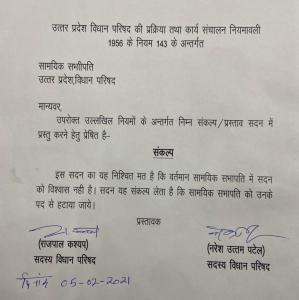 उत्तर प्रदेश विधान परिषद की प्रक्रिया तथा कार्य संचालन नियमावली
1956 के नियम 143 के अन्तर्गत
सामयिक सभापति
उत्तर प्रदेश,विधान परिषद
मान्यवर,
उपरोक्त उल्लखित नियमों के अन्तर्गत निम्न संकल्प/प्रस्ताव सदन में
प्रस्तु करने हेतु प्रेषित है-
संकल्प
इस सदन का यह निश्चित मत है कि वर्तमान सामयिक सभापति में सदन
को विश्वास नही है। सदन यह संकल्प लेता है कि सामयिक सभापति को उनके
पद से हटाया जाये।
प्रस्तावक
(राजपाल कश्यप) (नरेश उत्तम पटेल)
सदस्य विधान परिषद सदस्य विधान परिषद
दिनांक 05-02-2021